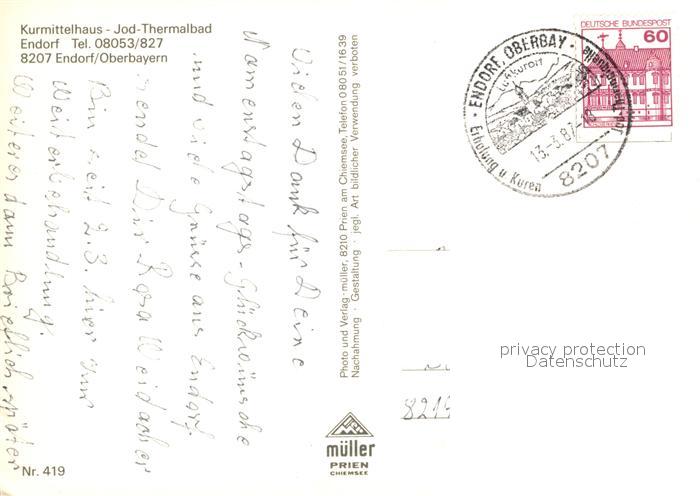 Kurmittelhaus - Jod-Thermalbad
Endorf Tel. 08053/827
8207 Endorf/Oberbayern
Vielen Dank für Deine
Namenstags-Glückwünsche
und viele Grüsse aus Endorf
sendet Dir Rosa Weidacher
Bin seit 2.3. hier zur
Weiterbehandlung.
Weiteres dann Brieflich später
Nr. 419
Photo und Verlag · müller, 8210 Prien am Chiemsee, Telefon 08051/1639
Nachahmung · Gestaltung · jegl. Art bildlicher Verwendung verboten
müller
PRIEN
CHIEMSEE
DEUTSCHE BUNDESPOST
60
ENDORF, OBERBAY
Luftkurort
13.-3.8
8207
Erholung u Kuren
821
privacy protection
Datenschutz